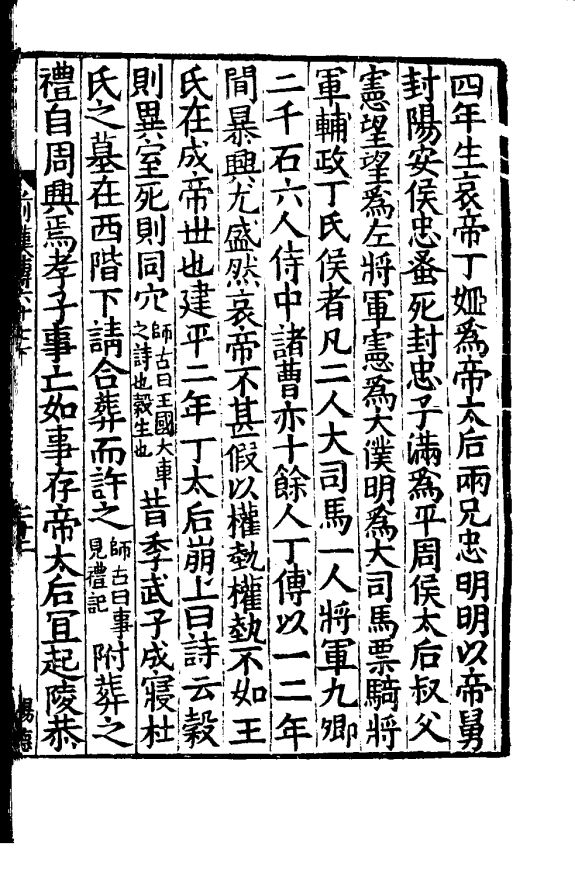 四年生哀帝丁姬爲帝太后兩兄忠明明以帝舅
封陽安侯忠蚤死封忠子滿爲平周侯太后叔父
憲望望爲左將軍憲爲大僕明爲大司馬票騎將
軍輔政丁氏侯者凡二人大司馬一人將軍九卿
二千石六人侍中諸曹亦十餘人丁傅以一二年
間暴興尤盛然哀帝不甚假以權埶權埶不如王
氏在成帝世也建平二年丁太后崩上曰詩云穀
則異室死則同穴師古曰王國大車之詩也穀生也昔季武子成寢杜
氏之墓在西階下請合葬而許之師古曰事見禮記附葬之
禮自周興焉孝子事亡如事存帝太后宜起陵恭